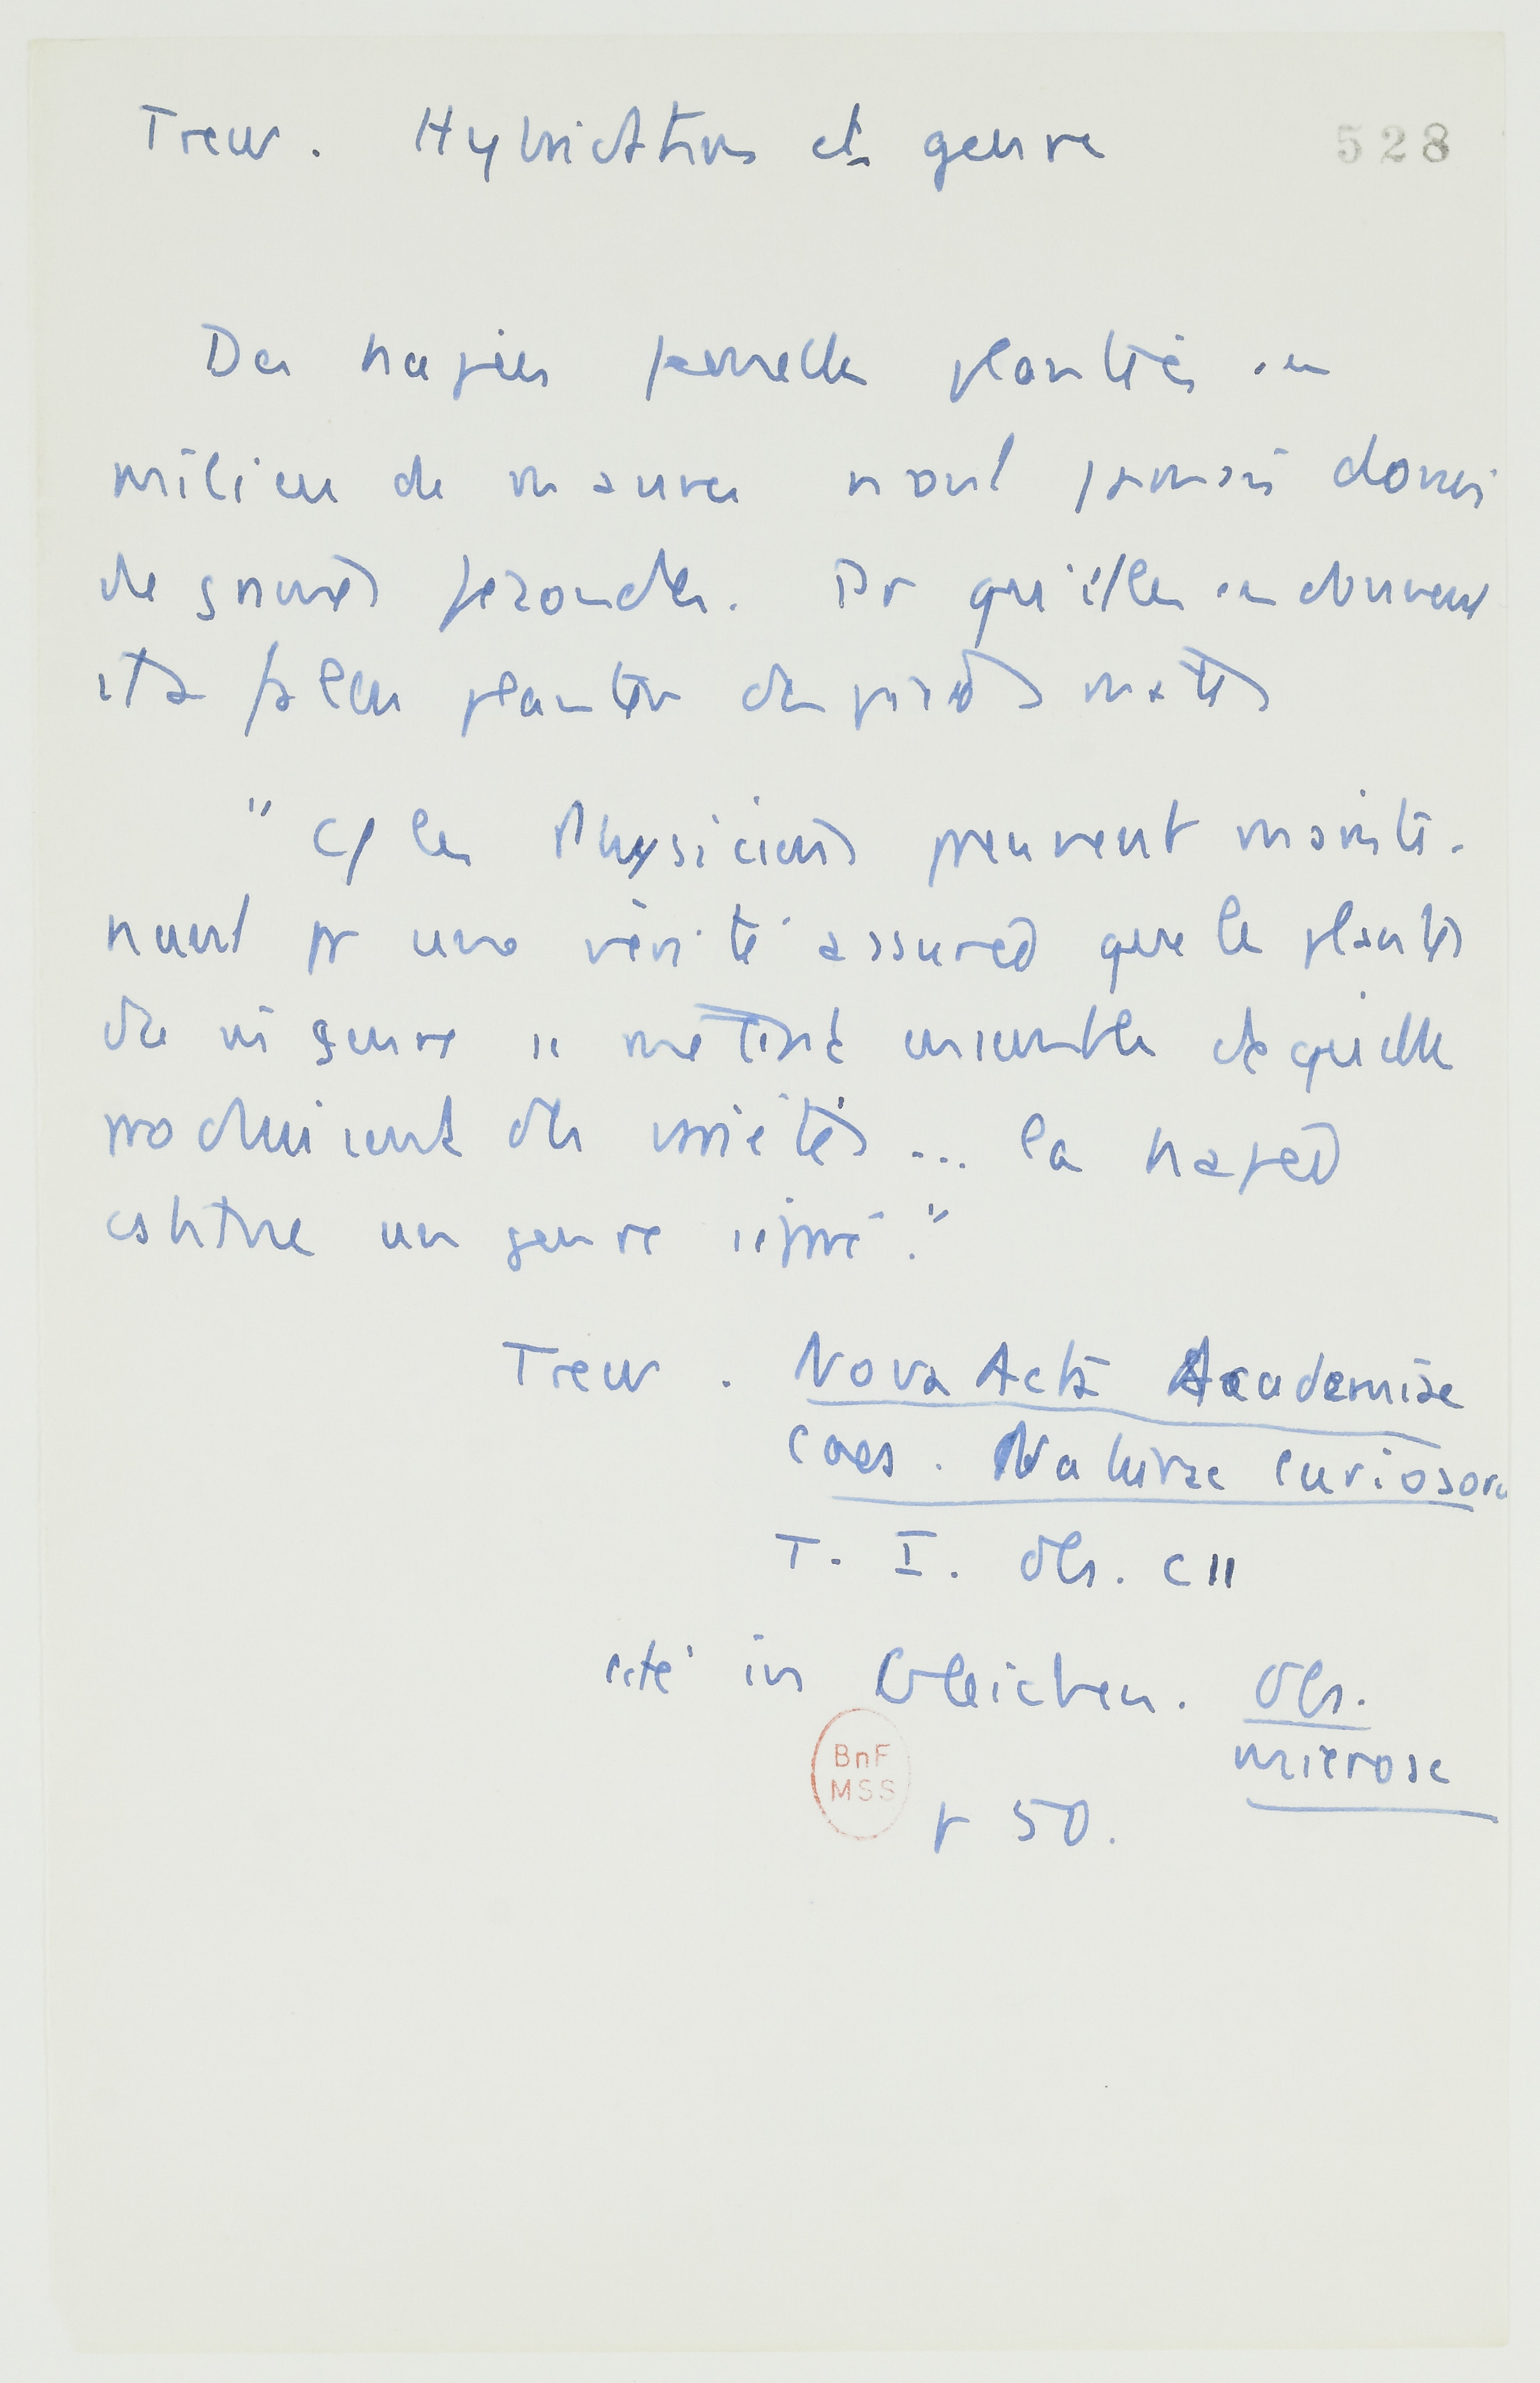 Trew. Hybridations et genre
528
Des napées femelles plantées au
milieu de mauves n'ont jamais donné
de graines fécondes. Pr qu'elles en donnent
il a fallu planter des pieds mâles
" les Physiciens peuvent mainte-
nant pr une vérité assurée que les plantes
du m genre se mêlent ensemble et qu'elles
produisent des variétés ... la napée
constitue un genre séparé."
Trew. Nova Acta Academiae
Caes. Naturae Curiosoru
T. I. Obs. CII
cité in Gleichen. Obs.
microsc
BnF
MSS
p 50.